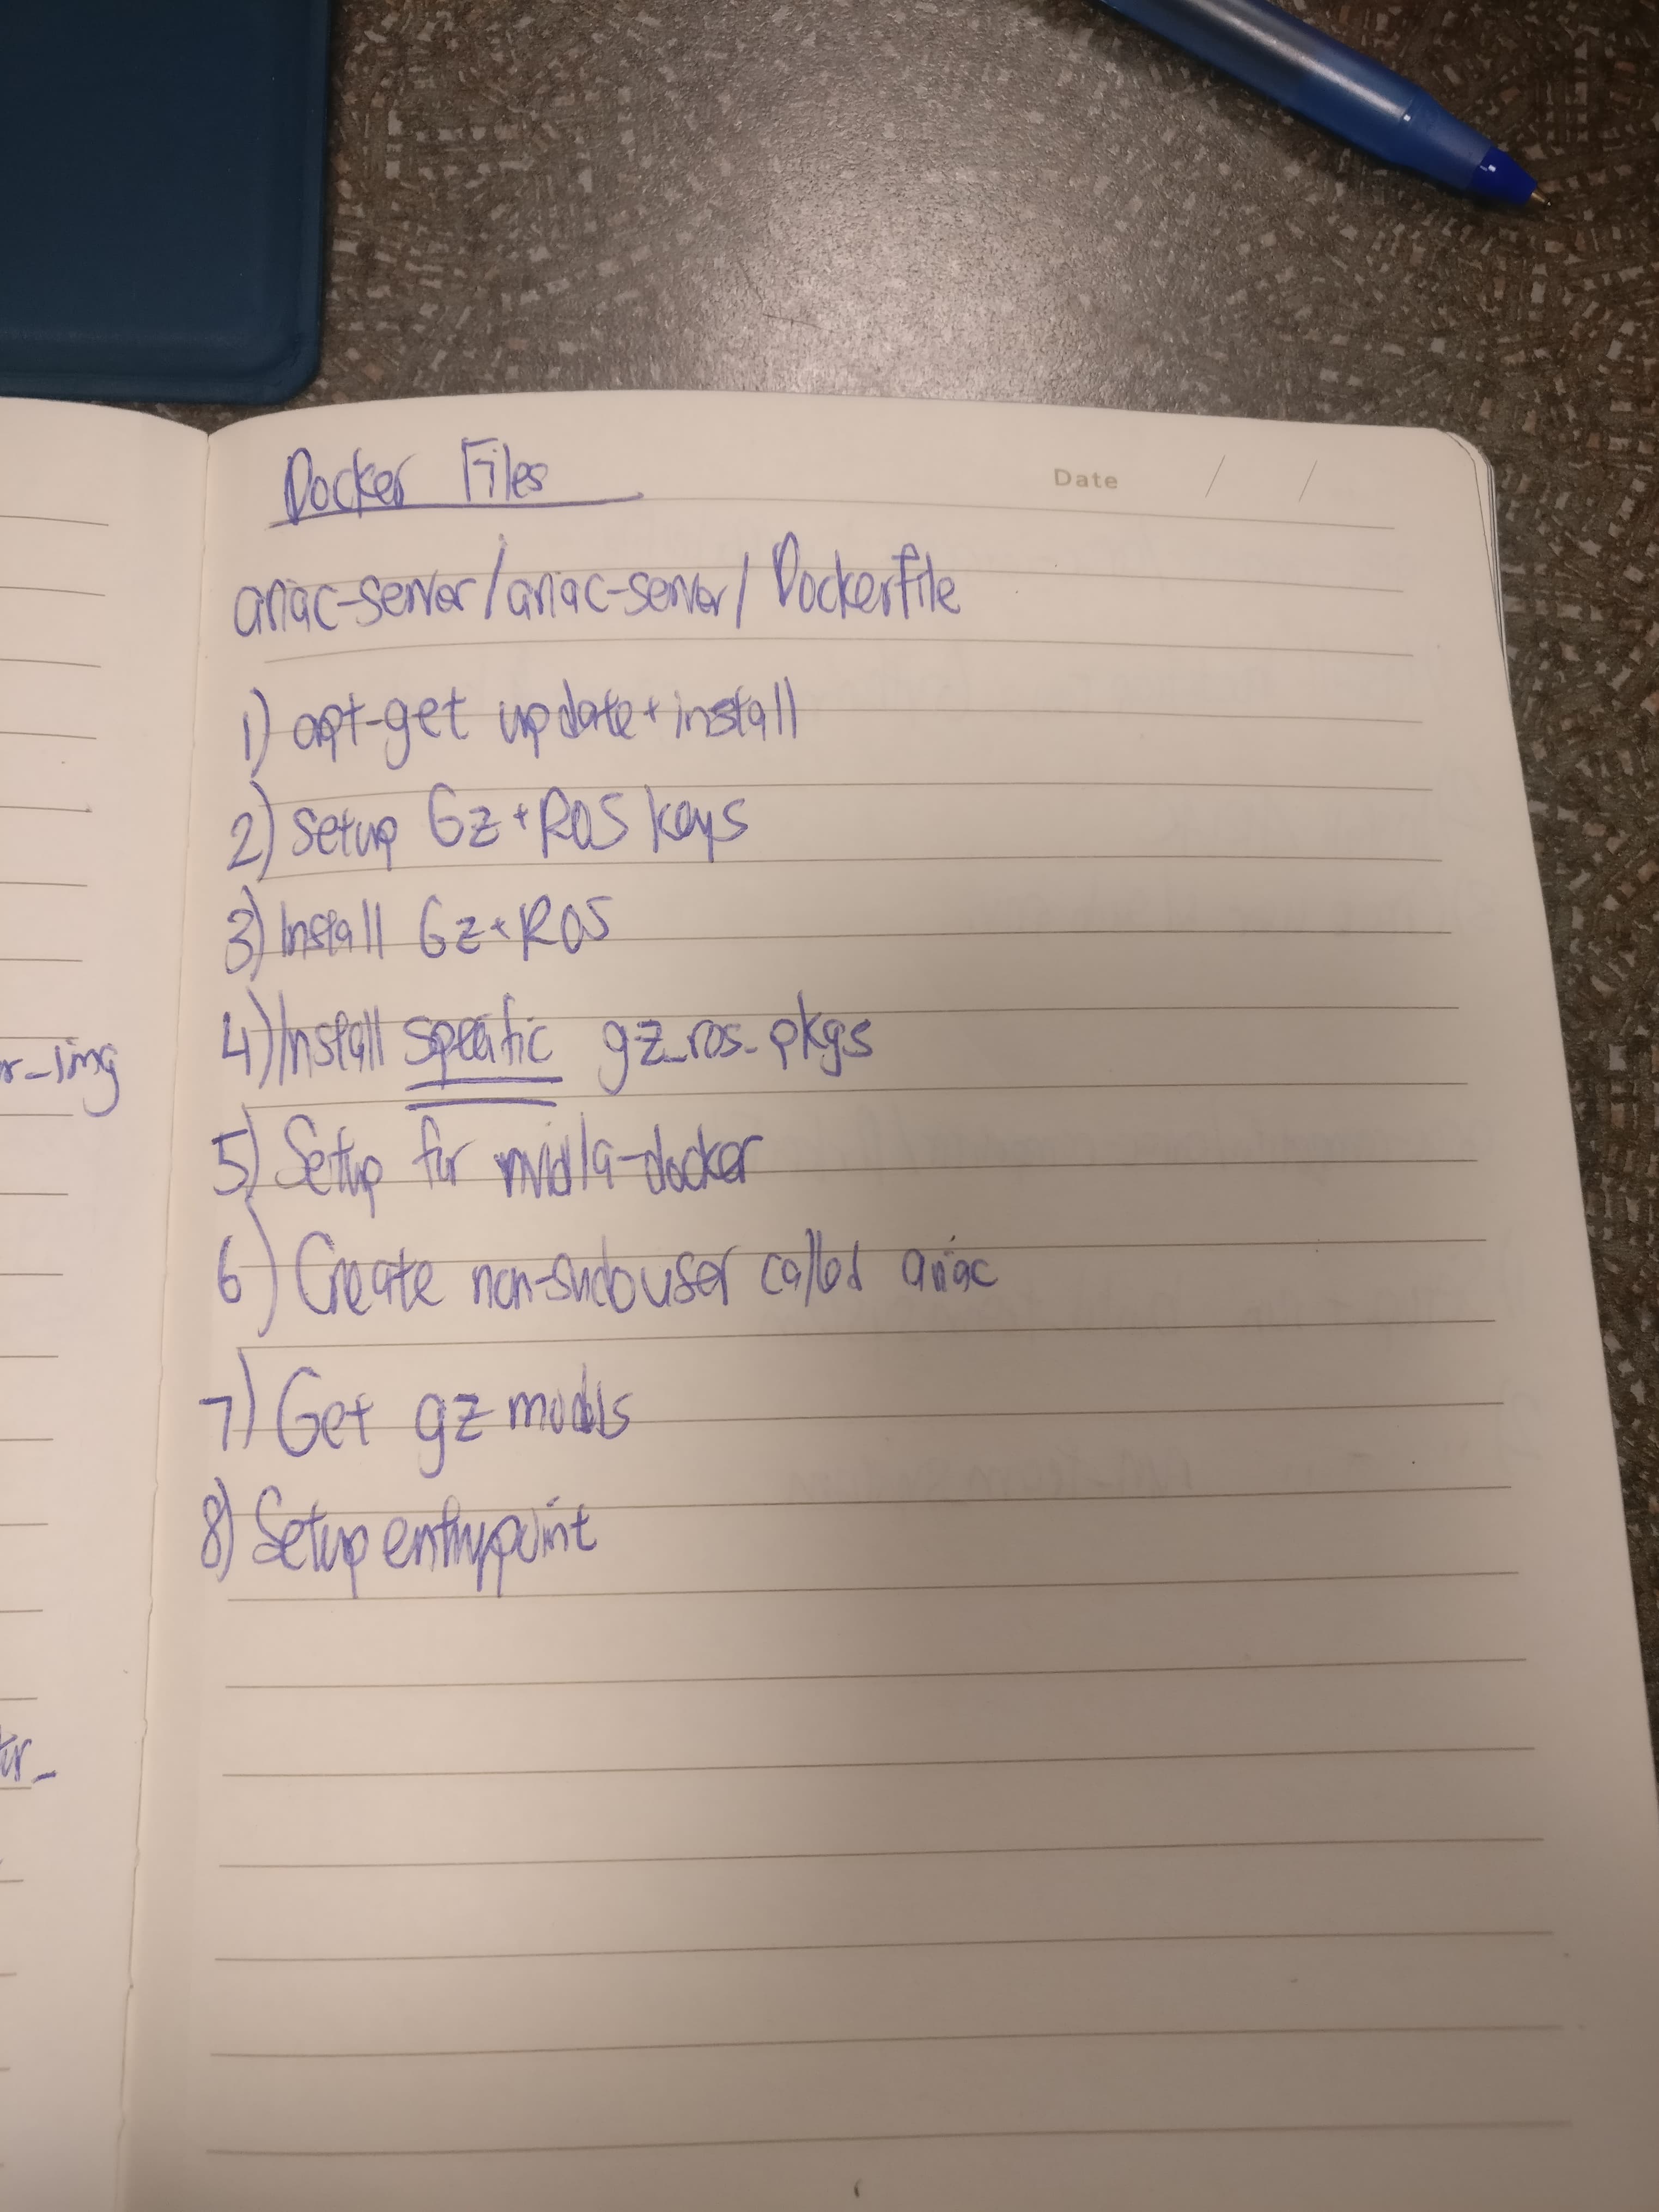 Docker Files
Date / /
ariac-server/ariac-server/Dockerfile
1) apt-get update + install
2) Setup Gz + ROS keys
3) Install Gz + ROS
4) Install specific gz_ros_pkgs
5) Setup for nvidia-docker
6) Create non-sudo user called ariac
7) Get gz models
8) Setup entrypoint
r-img